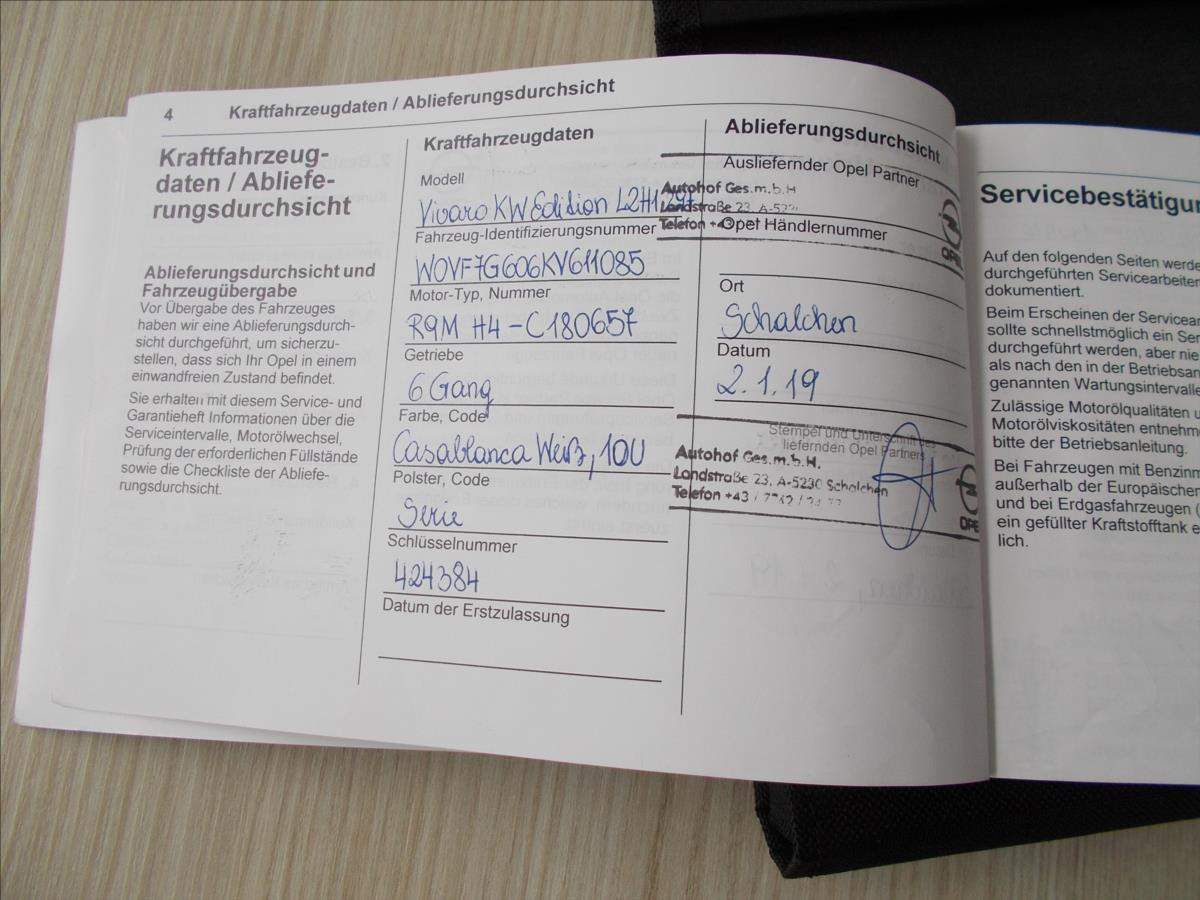 4
Kraftfahrzeugdaten / Ablieferungsdurchsicht
Kraftfahrzeug-
daten / Abliefe-
rungsdurchsicht
Ablieferungsdurchsicht und
Fahrzeugübergabe
Vor Übergabe des Fahrzeuges
haben wir eine Ablieferungsdurch-
sicht durchgeführt, um sicherzu-
stellen, dass sich Ihr Opel in einem
einwandfreien Zustand befindet.
Sie erhalten mit diesem Service- und
Garantieheft Informationen über die
Serviceintervalle, Motorölwechsel,
Prüfung der erforderlichen Füllstände
sowie die Checkliste der Abliefe-
rungsdurchsicht.
Kraftfahrzeugdaten
Modell
Vivaro KW Edition L2H1
Fahrzeug-Identifizierungsnummer
W0VF7G606KV611085
Motor-Typ, Nummer
R9M H4 - C180657
Getriebe
6 Gang
Farbe, Code
Casablanca Weiß, 10U
Polster, Code
Serie
Schlüsselnummer
424384
Datum der Erstzulassung
Ablieferungsdurchsicht
Ausliefernder Opel Partner
Autohof Ges.m.b.H
Landstraße 23, A-523
Telefon +43
Opel Händlernummer
OPEL
Ort
Schalchen
Datum
2.1.19
Stempel und Unterschrift des
liefernden Opel Partners
Autohof Ges.m.b.H.
Landstraße 23, A-5230 Schalchen
Telefon +43
OPE
Servicebestätigu
Auf den folgenden Seiten werde
durchgeführten Servicearbeiten
dokumentiert.
Beim Erscheinen der Servicean
sollte schnellstmöglich ein Ser
durchgeführt werden, aber nie
als nach den in der Betriebsan
genannten Wartungsintervalle
Zulässige Motorölqualitäten u
Motorölviskositäten entnehm
bitte der Betriebsanleitung.
Bei Fahrzeugen mit Benzinm
außerhalb der Europäischen
und bei Erdgasfahrzeugen (
ein gefüllter Kraftstofftank e
lich.